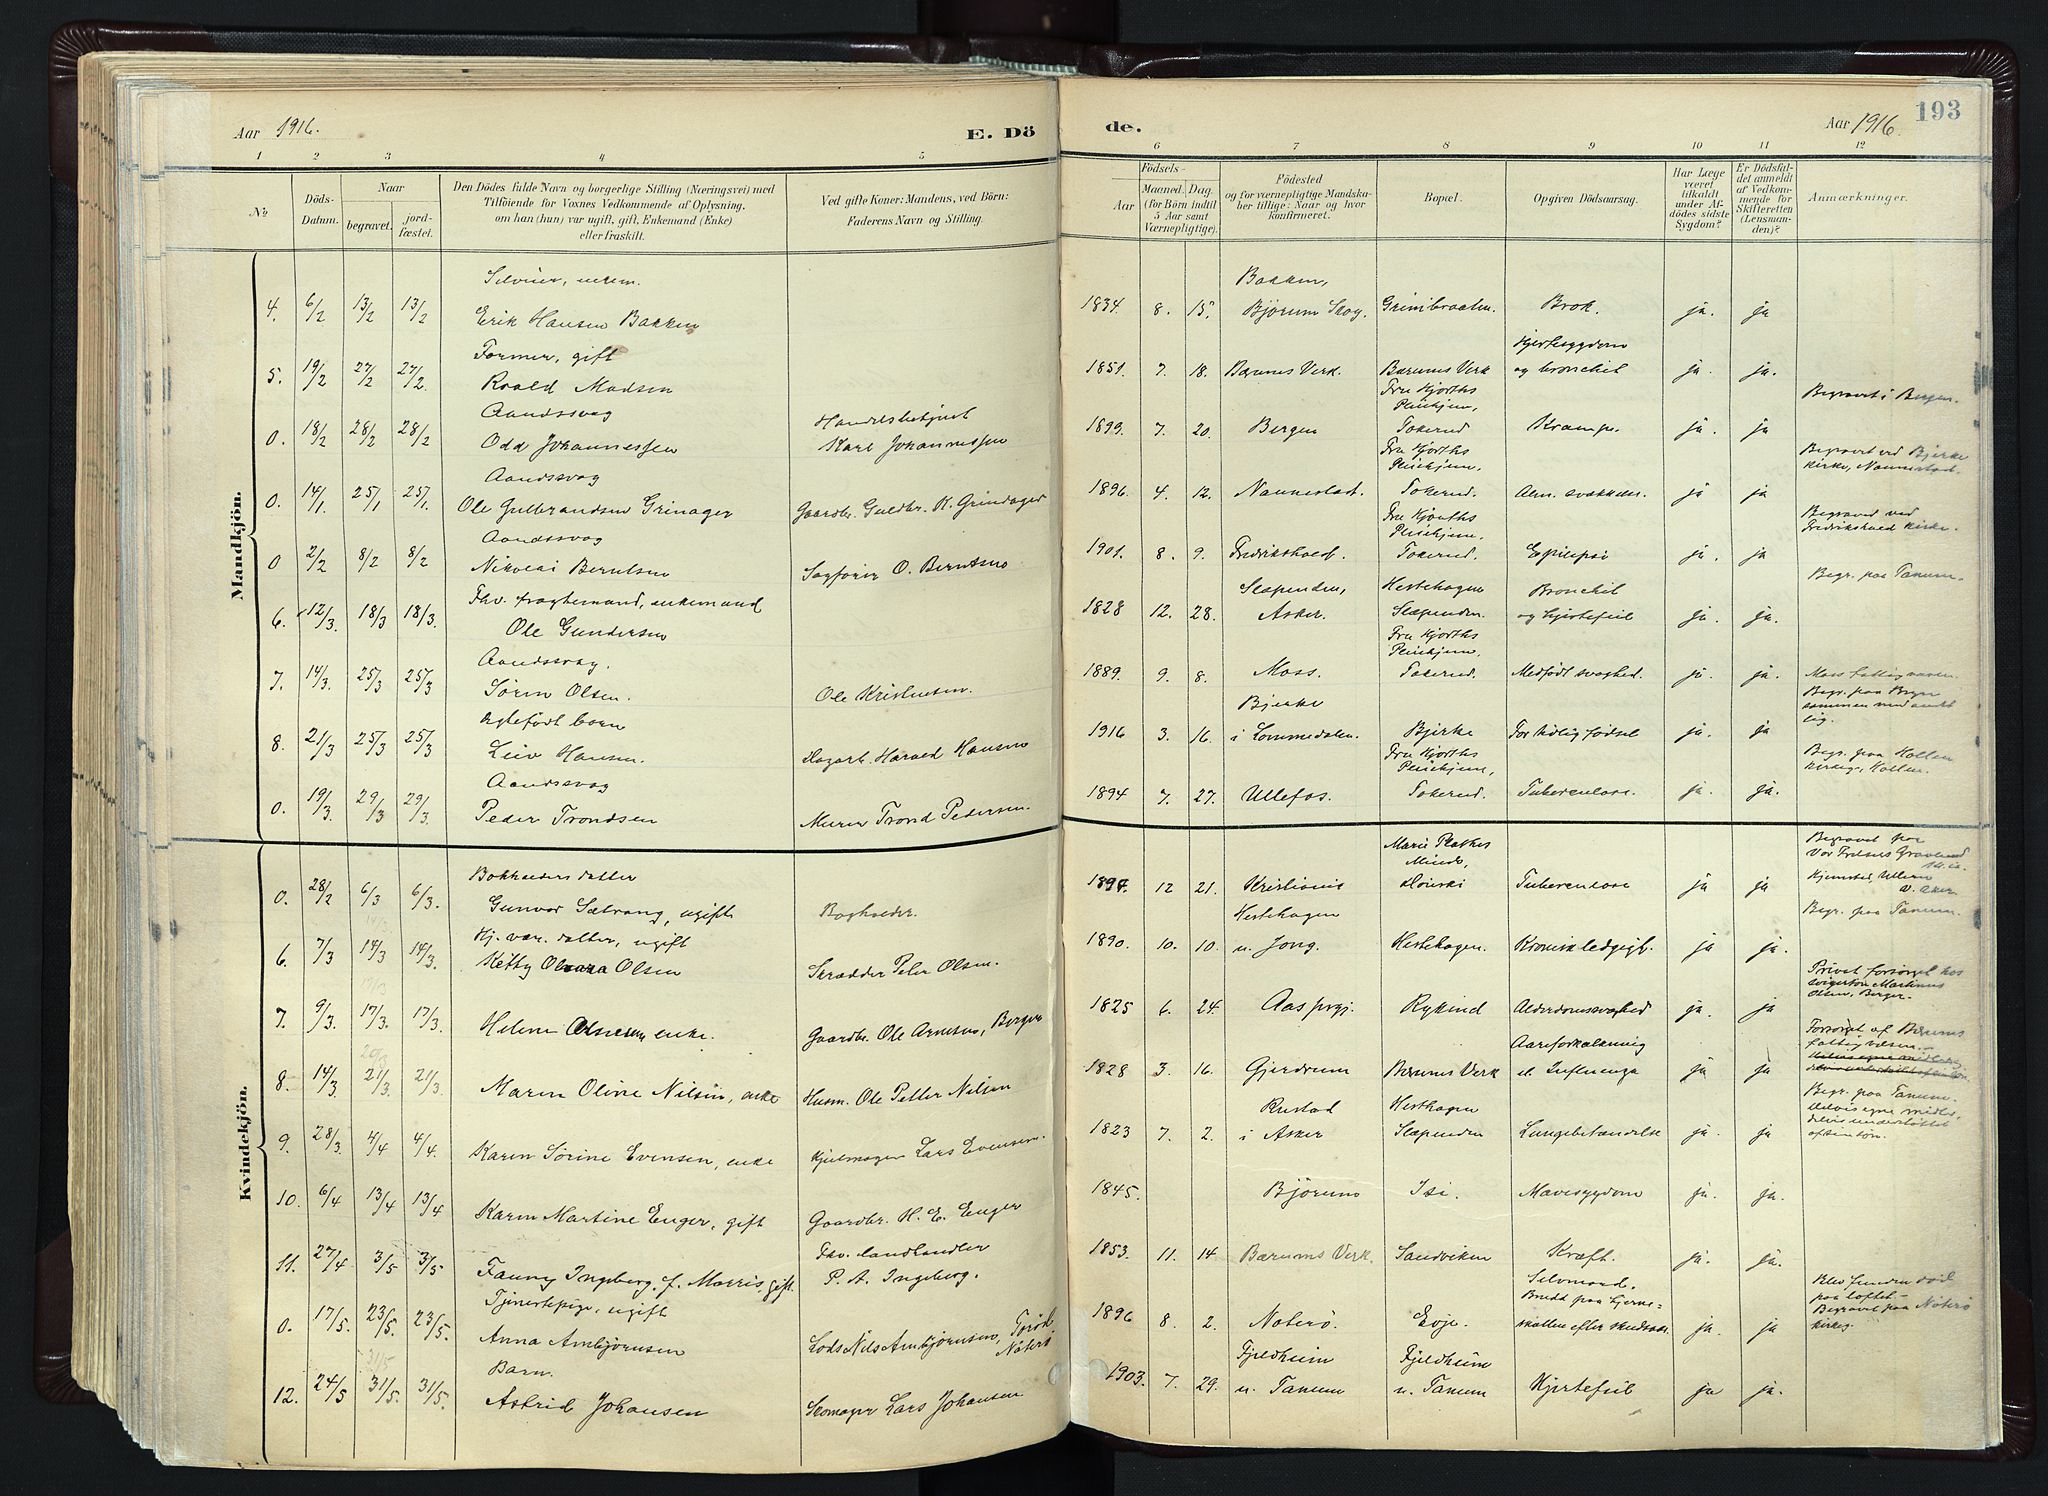 193
Aar 1916.
E. Dö
de.
Aar 1916.
1 2 3 4 5 6 7 8 9 10 11 12
№
Döds-
Datum.
Naar
begravet.
jord-
fæstet.
Den Dödes fulde Navn og borgerlige Stilling (Næringsvei) med
Tilföiende for Voxnes Vedkommende af Oplysning,
om han (hun) var ugift, gift, Enkemand (Enke)
eller fraskilt.
Ved gifte Koner: Mandens, ved Börn:
Faderens Navn og Stilling.
Födsels-
Aar
Maaned. Dag.
(for Börn indtil
5 Aar samt
Værnepligtige).
Födested
og for værnepligtige Mandska-
ber tillige: Naar og hvor
konfirmeret.
Bopæl.
Opgiven Dödsaarsag.
Har Læge
været
tilkaldt
under Af-
dödes sidste
Sygdom?
Er Dödsfal-
det anmeldt
af Vedkom-
mende for
Skifteretten
(Lensman-
den)?
Anmærkninger.
Mandkjön.
Selveier, enkem. Bakken,
4. 6/2 13/2 13/2 Erik Hansen Bakken 1834. 8. 15. Bjørum Skog. Grinibraaten. Brok. ja. ja
Former, gift Hjertesygdom
5. 19/2 27/2 27/2 Roald Madsen 1851. 7. 18. Bærums Verk. Bærums Verk og bronchit ja. ja.
Aandssvag Handelsbetjent Fru Hjorths Pleiehjem, Begravet i Bergen.
0. 18/2 28/2 28/2 Odd Johannessen Karl Johannessen 1899. 7. 20. Bergen Tokerud Krampe. ja. ja
Aandssvag Fru Hjorths Pleiehjem. Begravet ved Bjerke kirke, Nannestad.
0. 14/1. 25/1 25/1. Ole Gulbrandsen Grinager Gaardbr. Guldbr. K. Grindager 1896. 4. 12. Nannestad. Tokerud. Alm. svækkelse. ja ja
Aandssvag Fru Hjorths Pleiehjem. Begravet ved Fredrikshald kirke.
0 2/2 8/2 8/2 Nikolai Berntsen Sagfører O. Berntsen 1901. 8. 9. Fredrikshald. Tokerud. Epilepsi ja. ja
Fhv. fragtemand, enkemand Slæpenden, Hestehagen Bronchit Begr. paa Tanum.
6. 12/3. 18/3 18/3. Ole Gundersen 1828 12. 28. Asker. Slæpenden og hjertefeil ja. ja.
Aandssvag. Fru Hjorths Pleiehjem,
7. 14/3. 25/3 25/3 Søren Olsen. Ole Kristensen. 1889. 9. 8. Moss. Tokerud. Medfødt svaghed. ja. ja. Moss fattigvæsen.
Ægtefødt barn Bjerke Begr. paa Bryn sammen med andet lig.
8. 21/3 25/3 25/3 Leiv Hansen. Dagarb. Harald Hansen 1916 3. 16. i Lommedalen. Bjerke For tidlig fødsel ja. ja
Aandssvag Fru Hjorths Pleiehjem, Begr. paa Hollen kirkeg., Hollen.
0. 19/3. 29/3 29/3. Peder Trondsen Murer Trond Pedersen. 1894 7. 27. Ullefos. Tokerud. Tuberculose. ja. ja.
Kvindekjön.
Bokholders datter Marie Plathes Minde, Begravet paa Vor Frelsers Gravlund
0. 28/2 6/3 6/3. Gunvor Sætrang, ugift Bogholder. 12 21. Kristiania Høvik Tuberculose ja ja Hjemsted, Ullern v. Aker
Hj. vær. datter, ugift Hestehagen Begr. paa Tanum.
6. 7/3 14/3 14/3. Ketty Olsen Skrædder Peter Olsen. 1890. 10. 10. u. Jong. Hestehagen. Kronisk ledgigt. ja ja.
7. 9/3. 17/3. 17/3. Helene enke. Gaardbr. Ole Arnesen, Berger 1825 6. 24. Aas prgj. Rykind Alderdomssvaghed ja. ja Privat forsørget hos svigersøn Martinus Olsen, Berger.
Aareforkalkning Forsørget af Bærums fattigvæsen.
8. 14/3 21/3 21/3 Maren Oline Nilsen, enke Husm. Ole Petter Nilsen 1828 3. 16. Gjerdrum Bærums Verk u. Influenza ja ja
Rustad Hesthagen Begr. paa Tanum. Delvis egne midler, delvis understøttet af sin søn.
9. 28/3. 4/4 4/4. Karen Sørine Evensen, enke Hjulmager Lars Evensen. 1823 7. 2. i Asker Slæpenden Lungebetændelse ja. ja
10. 6/4 13/4 13/4 Karen Martine Enger, gift Gaardbr. H. E. Enger 1845. Bjørum Isi. Mavesygdom ja. ja.
Fhv. landhandler
11. 27/4 3/5 3/5 Fanny Ingeberg, f. Morris, gift. P. A. Ingeberg. 1853. 11. 14. Bærums Verk. Sandviken Kræft. ja. ja.
Tjenestepige, ugift Selvmord. Brudd paa hjerne- Blev funden død paa loftet.-
0. 17/5. 23/5. 23/5. Anna Ambjørnsen Lods Nils Ambjørnsen, Nøterø 1896 8. 2. Nøterø. Evje. skallen efter skudsaar ja. ja Begravet paa Nøterø kirkeg.
Barn. Fjeldheim Fjeldheim
12. 24/5 31/5. 31/5. Astrid Johansen Skomager Lars Johansen 1903. 7. 29. u. Tanum u. Tanum Hjertefeil ja ja.